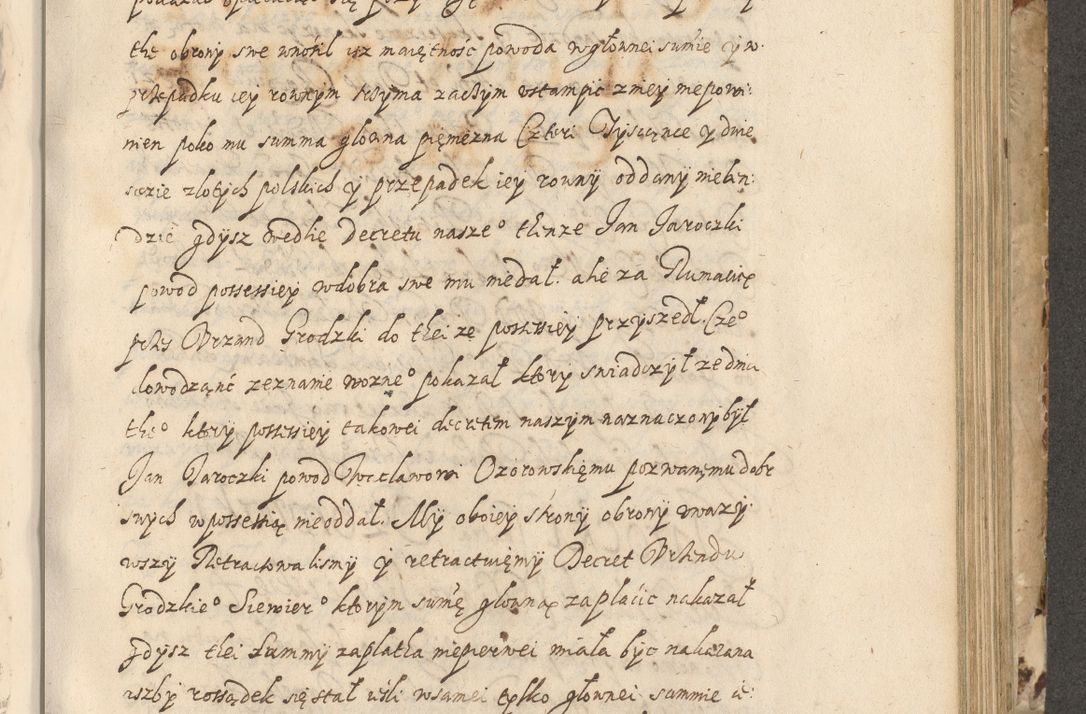 the obrony swe wnosil isz maiętnosc powoda w głownei sumie y w
przepadku iey rownym trzyma zaczym wstampic z niey niepowi:
nien poko mu summa głowna pięniezna Czteri Tysciące y dwie
scie zlotych polskich y przepadek iey rowny oddany niebęn:
dzie gdysz wedlie Decretu nasze° thenze Jan Jaroczki
powod possessiey w dobra swe mu niedał. ale za Runatią
przes Vrzand Grodzki do thei ze possessiey przyszedł. Cze°
dowodząnc zeznanie wozne° pokazał ktory sniadczył ze dnia
the° ktory possessiey takowei decretem naszym naznaczony był
Jan Jaroczki powod Woclawowi Ozorowskięmu pozwanęmu dobr
swych w possessią nieoddał. My oboiey strony obrony vwazy
wszy Retractowalismy y retractuięmy Decret Vrzendu
Grodzkie° Siewier° ktorym sumę głowną zaplacic nakazał
gdysz thei Summy zaplatha niepierwei miala byc nakazana
iszby rossądek się stał iesli w samei tylko głownei summie ie: